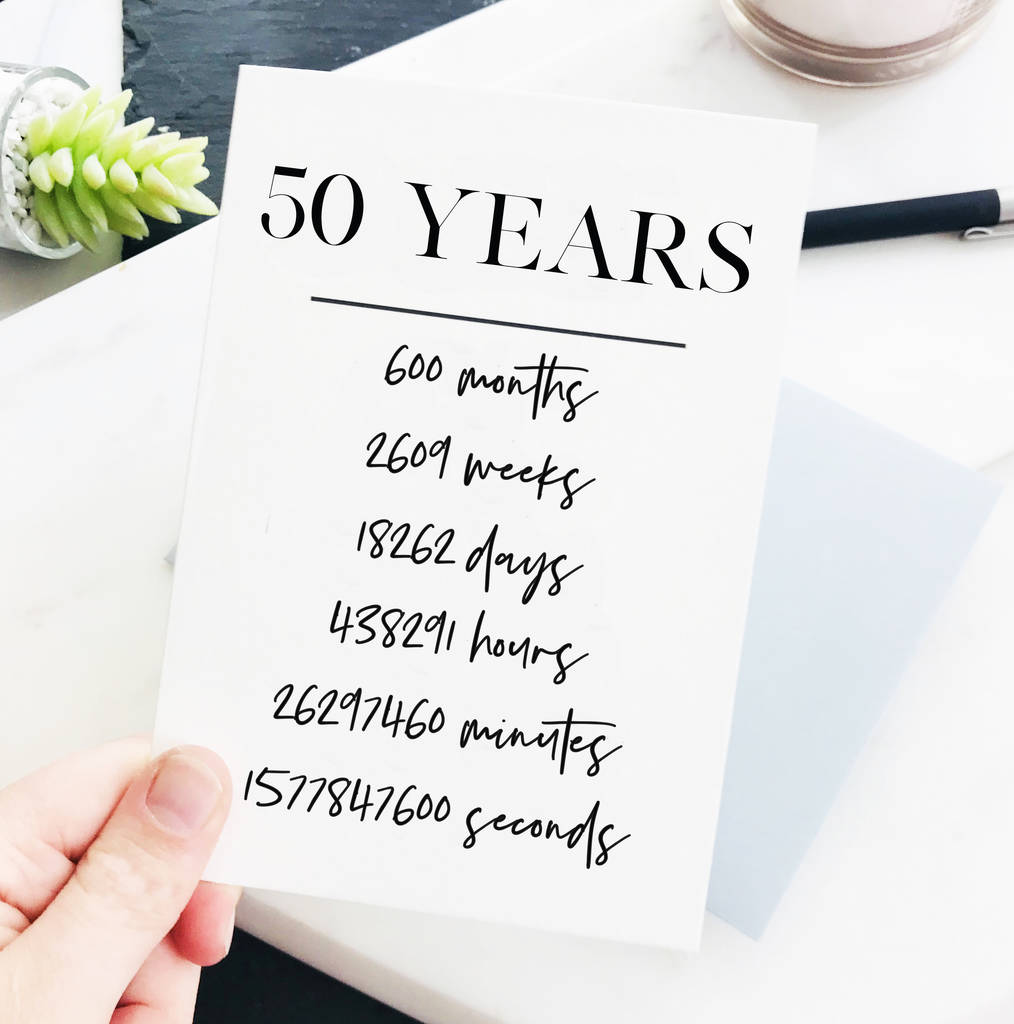 50 YEARS
600 months
2609 weeks
18262 days
438291 hours
26297460 minutes
1577847600 seconds